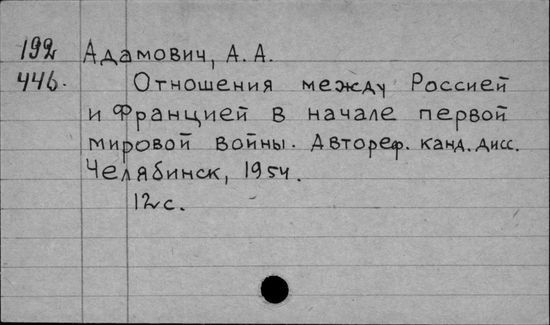 192 Адамович, А. А.
446. Отношения между Россией
и Францией в начале первой
мировой войны. Автореф. канд. дисс.
Челябинск, 1954.
12 с.